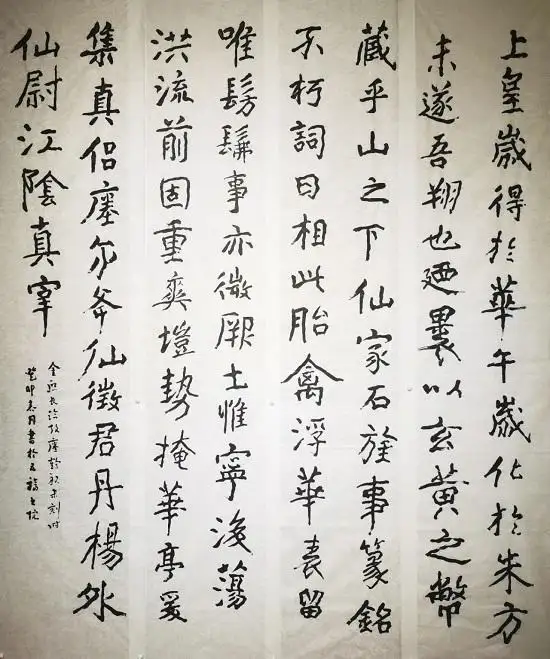 上皇歲得於華午歲化於朱方
未遂吾翔也廼裹以玄黃之幣
藏乎山之下仙家石旌事篆銘
不朽詞曰相此胎禽浮華表留
唯髣髴事亦微厥土惟寧後蕩
洪流前固重爽塏勢掩華亭爰
集真侶瘞尔仙徵君丹楊外
仙尉江陰真宰
癸卯月書於五福